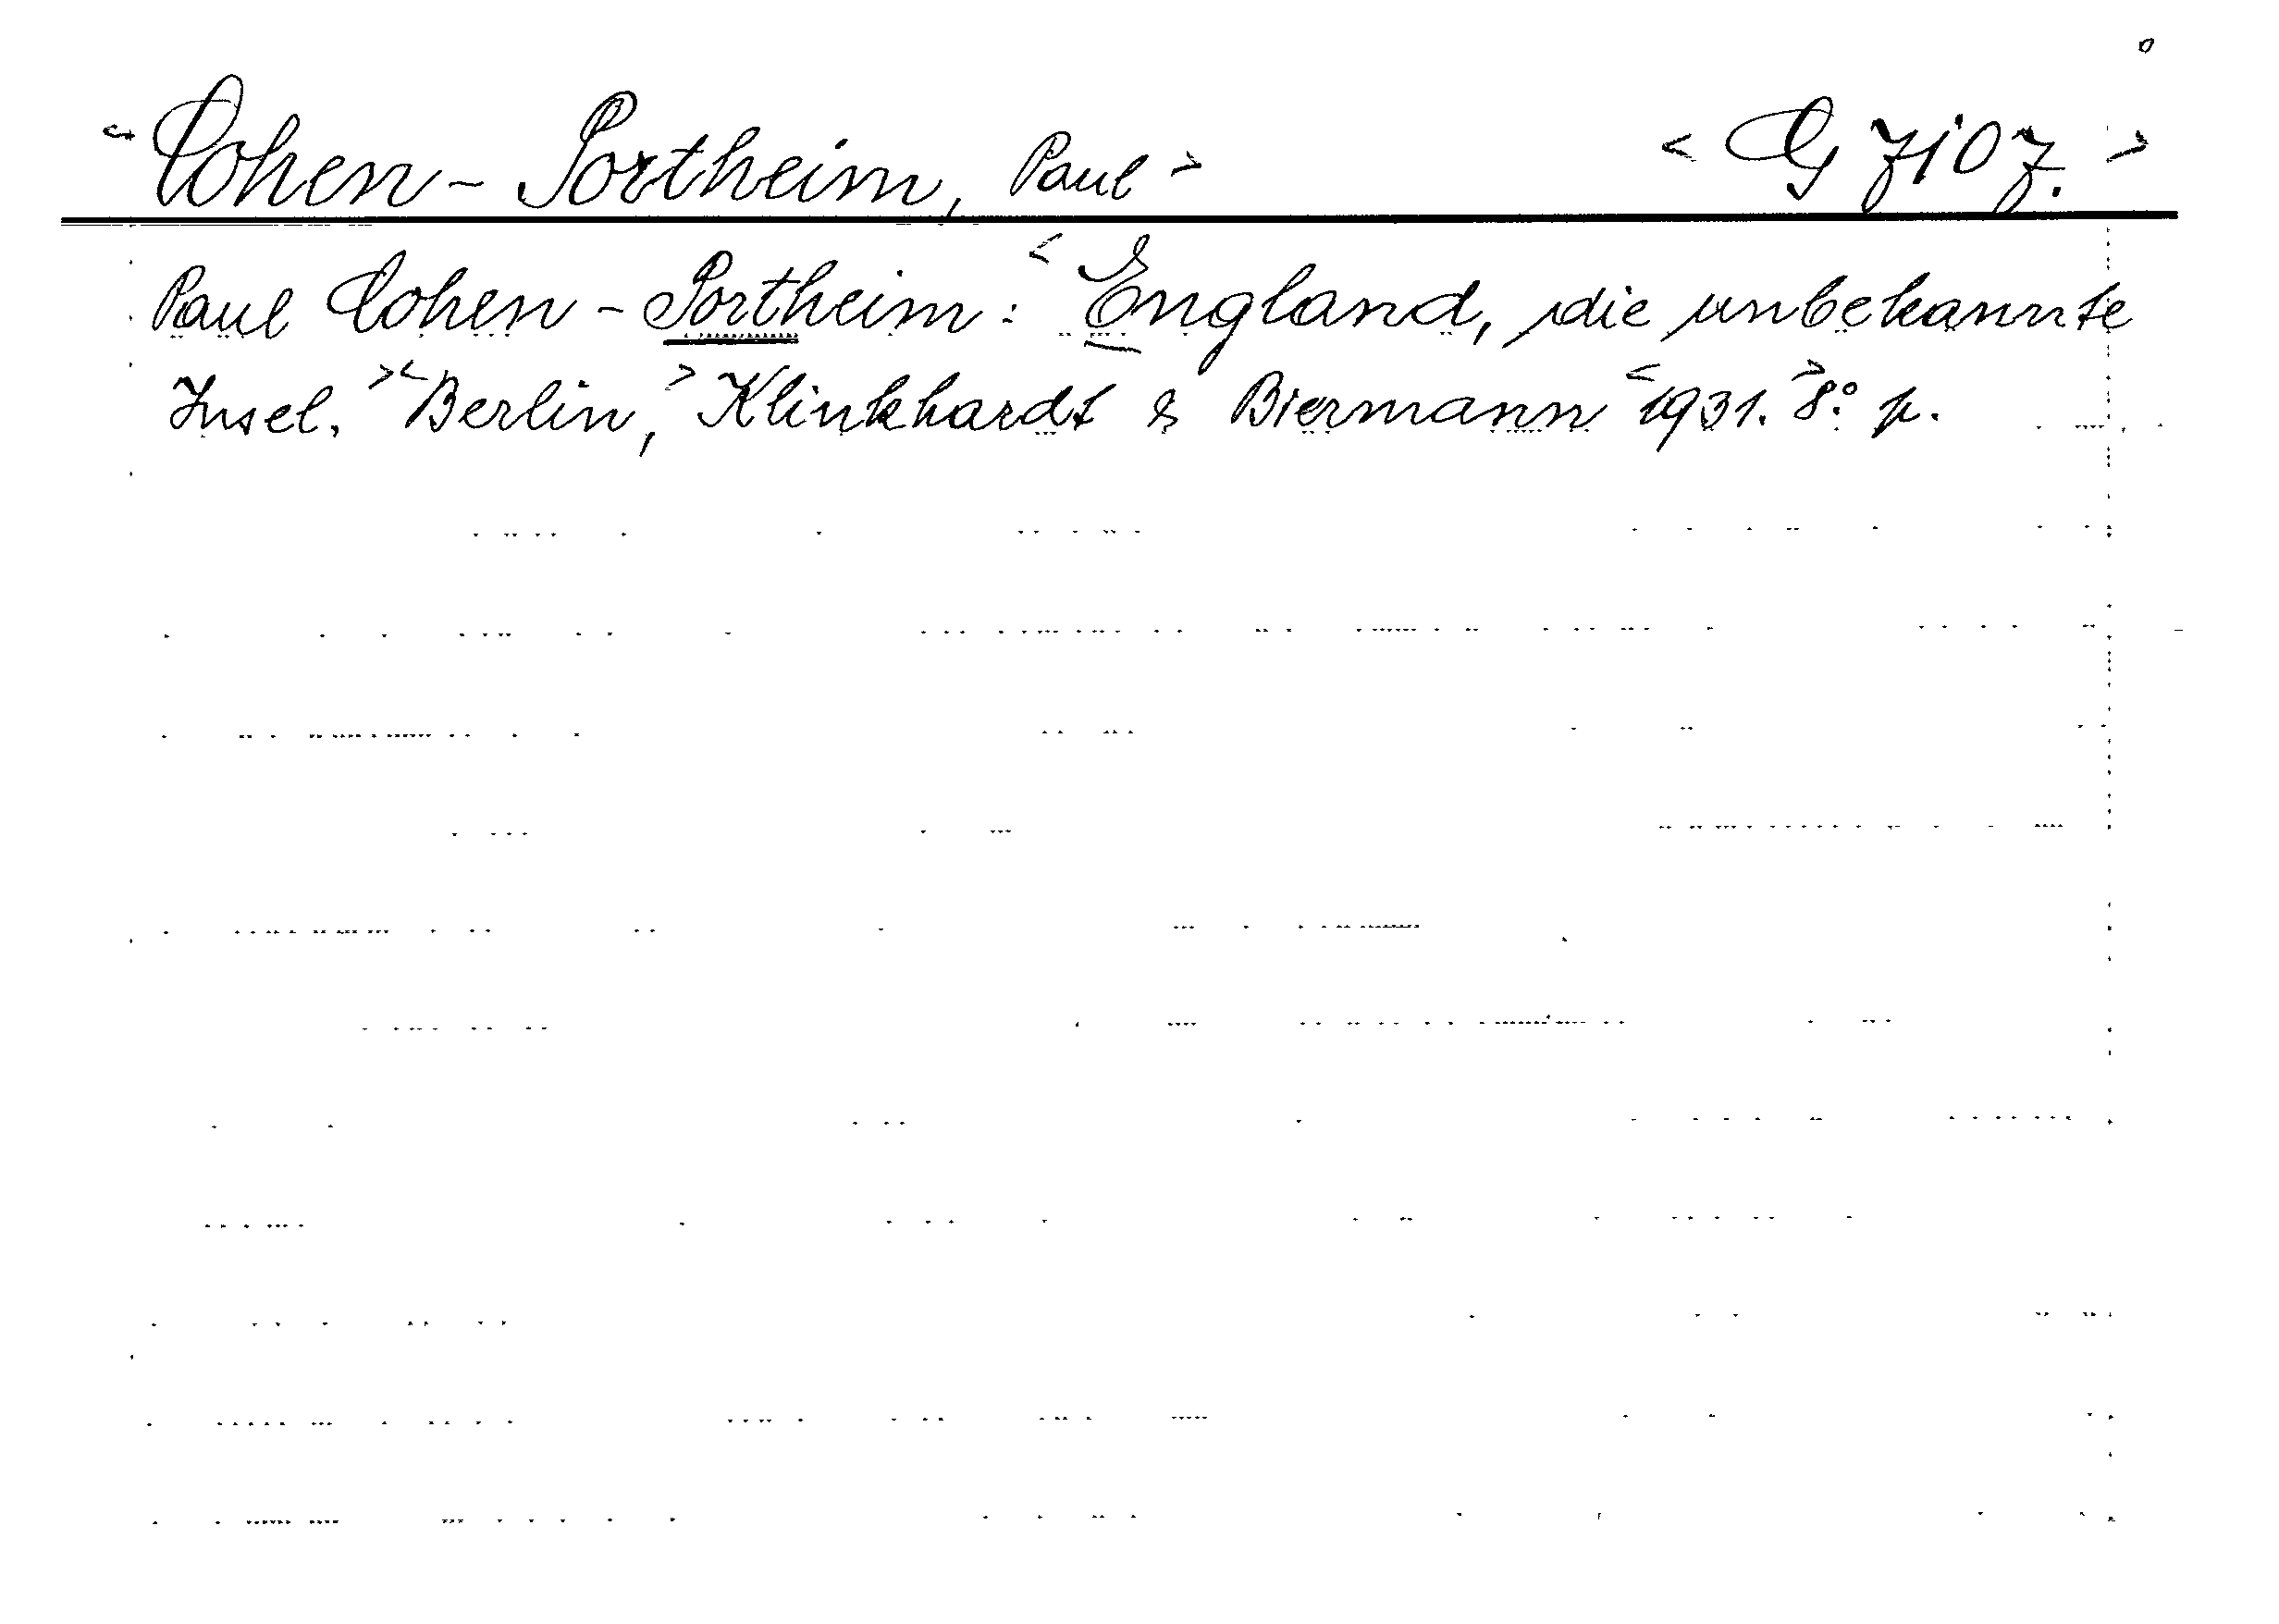 <Cohen-Portheim, Paul> <G 7107.>
Paul Cohen-Portheim: <England, die unbekannte
Insel.> <Berlin,> Klinkhardt & Biermann <1931.> 8° p.